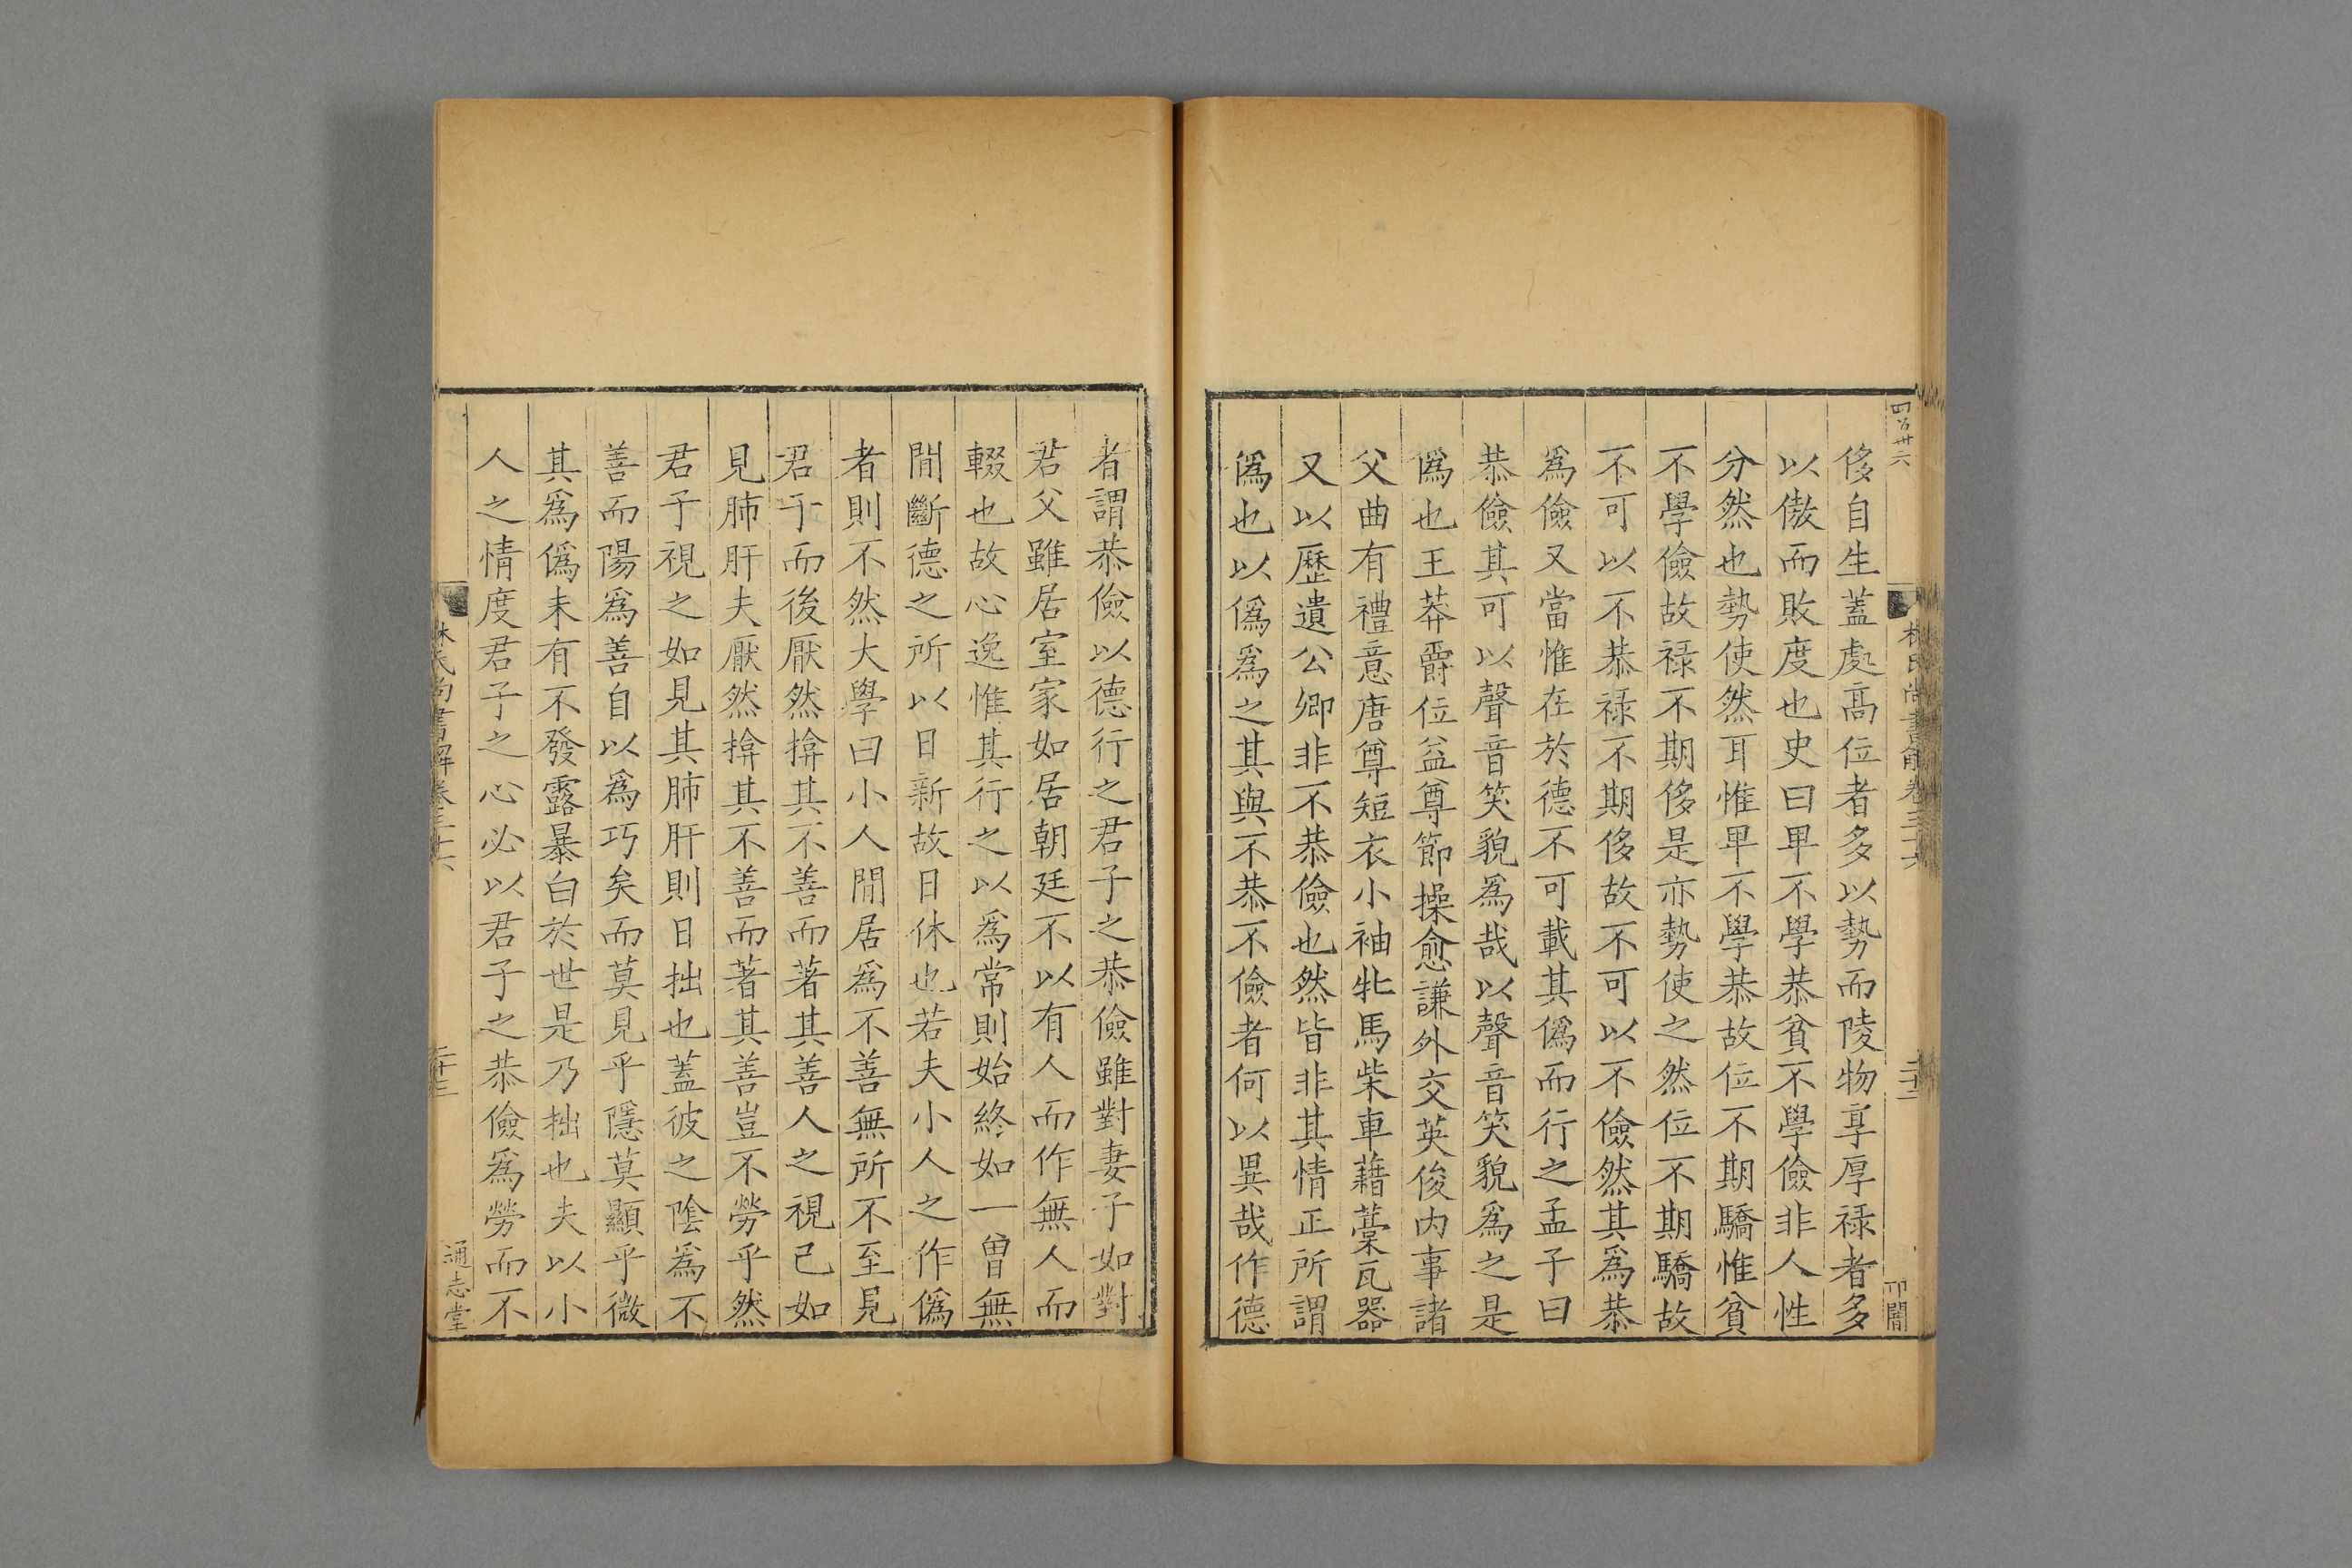 侈自生蓋處高位者多以勢而陵物享厚祿者多
以傲而敗度也史曰卑不學恭貧不學儉非人性
分然也勢使然耳惟卑不學恭故位不期驕惟貧
不學儉故祿不期侈是亦勢使之然位不期驕故
不可以不恭祿不期侈故不可以不儉然其爲恭
爲儉又當惟在於德不可載其僞而行之孟子曰
恭儉其可以聲音笑貌爲哉以聲音笑貌爲之是
僞也王莽爵位益尊節操愈謙外交英俊內事諸
父曲有禮意唐尊短衣小袖牝馬柴車藉藁瓦器
又以歷遺公卿非不恭儉也然皆非其情正所謂
僞也以僞爲之其與不恭不儉者何以異哉作德
者謂恭儉以德行之君子之恭儉雖對妻子如對
君父雖居室家如居朝廷不以有人而作無人而
輟也故心逸惟其行之以爲常則始終如一曾無
閒斷德之所以日新故日休也若夫小人之作僞
者則不然大學曰小人閒居爲不善無所不至見
君子而後厭然揜其不善而著其善人之視己如
見肺肝夫厭然揜其不善而著其善豈不勞乎然
君子視之如見其肺肝則日拙也蓋彼之陰爲不
善而陽爲善自以爲巧矣而莫見乎隱莫顯乎微
其爲僞未有不發露暴白於世是乃拙也夫以小
人之情度君子之心必以君子之恭儉爲勞而不
林氏尚書解卷三十六
二十三
通志堂